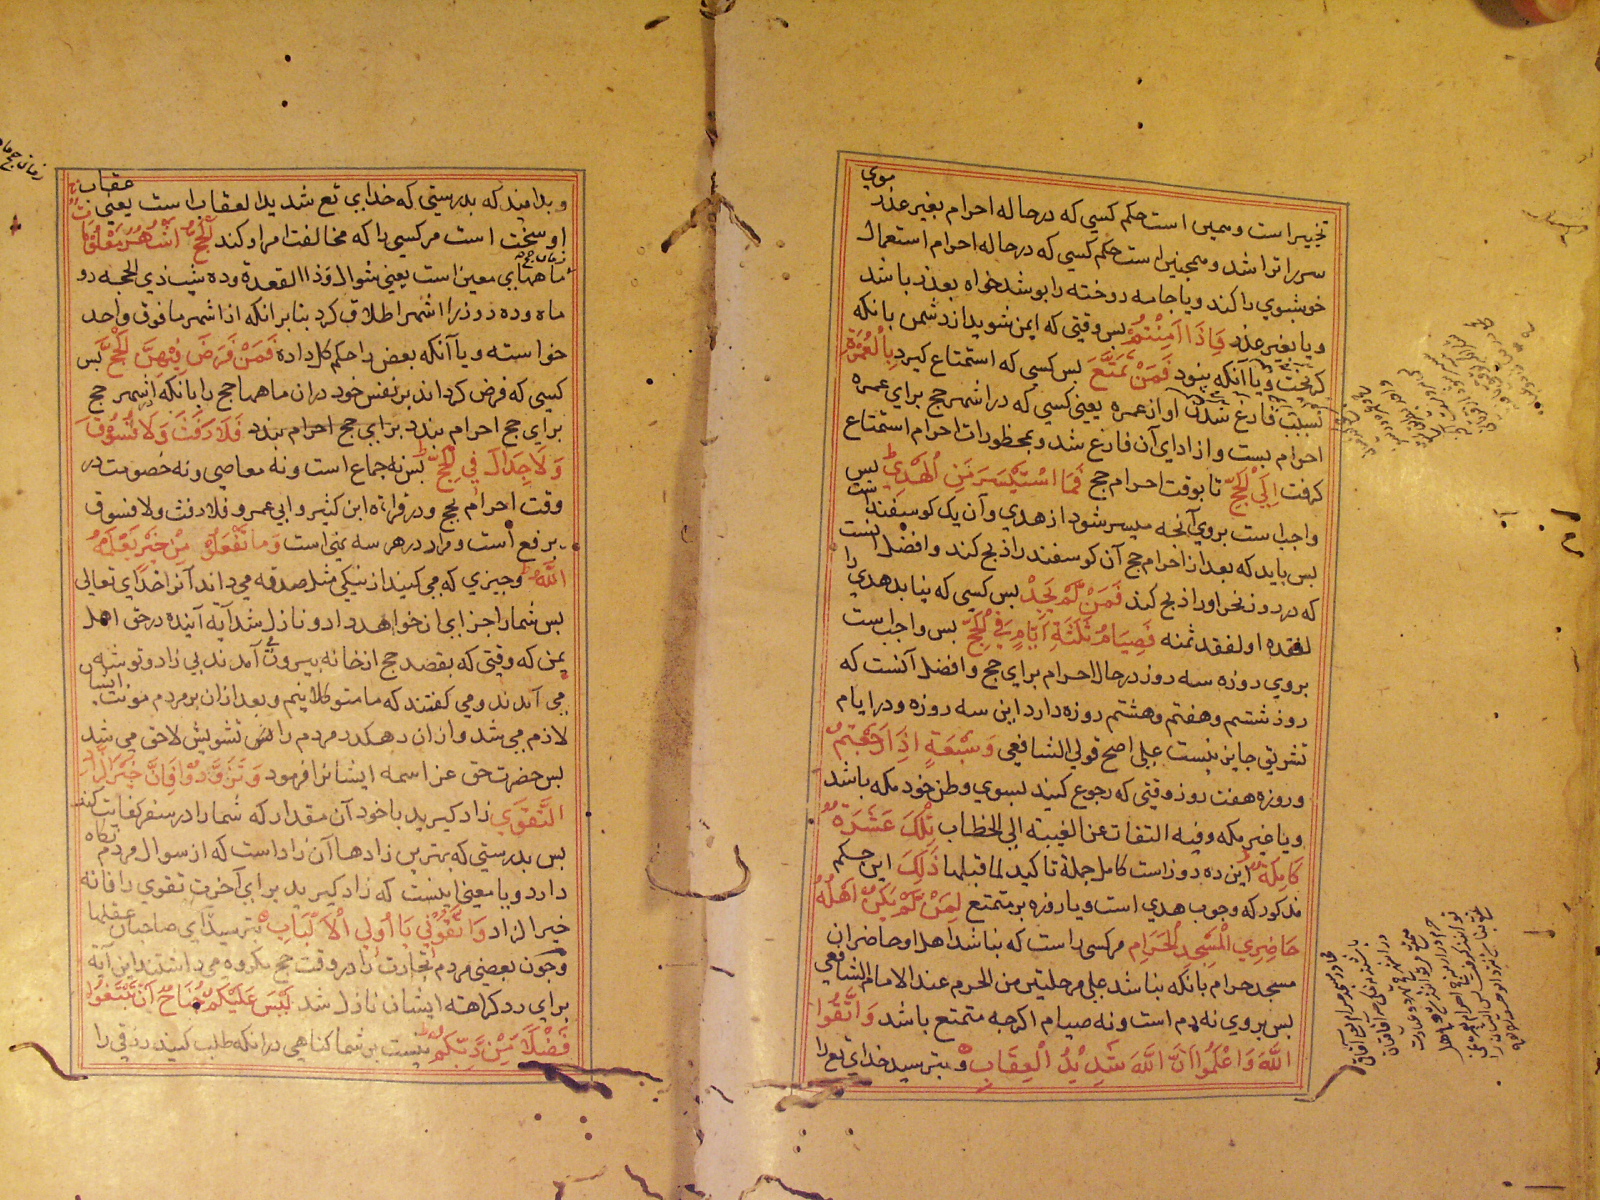 موي
تخيير است وهمين است حكم كسي كه در حاله احرام بغير عذر
سر را تراشد وهمچنين است حكم كسي كه در حاله احرام استعمال
خوشبوي را كند ويا جامه دوخته را بوشد خواه بعذر باشد
ويا بغير عذر فَإِذَا أَمِنْتُمْ بس وقتي كه ايمن شويد از دشمن بانكه
كريخت ويا آنكه بنود فَمَنْ تَمَتَّعَ بس كسي كه استمتاع كيرد بِالْعُمْرَةِ
بسبب فارغ شدن او از عمره يعني كسي كه در اشهر حج براي عمره
احرام بست واز اداي آن فارغ شد وبمحظورات احرام استمتاع
كرفت إِلَى الْحَجِّ تا بوقت احرام حج فَمَا اسْتَيْسَرَ مِنَ الْهَدْيِ بس
واجب است بروي آنچه ميسر شود از هدي وآن يك كوسفند است
بس بايد كه بعد از احرام حج آن كوسفند را ذبح كند وافضل آنست
كه در روز نحر اورا ذبح كند فَمَنْ لَمْ يَجِدْ بس كسي كه نيابد هدي را
لفقده او لفقد ثمنه فَصِيَامُ ثَلَثَةِ أَيَّامٍ فِي الْحَجِّ بس واجب است
بروي روزه سه روز در حال احرام براي حج وافضل آنست كه
روز ششم وهفتم وهشتم روزه دارد اين سه روزه ودر ايام
تشريق جايز نيست على اصح قولي الشافعي وَسَبْعَةٍ إِذَا رَجَعْتُمْ
وروزه هفت روز وقتي كه رجوع كنيد بسوي وطن خود مكه باشد
ويا غير مكه وفيه التفات عن الغيبة الى الخطاب تِلْكَ عَشَرَةٌ
كَامِلَةٌ اين ده روز است كامل جملة تاكيد لما قبلها ذَلِكَ اين حكم
مذكور كه وجوب هدي است ويا روزه بر متمتع لِمَنْ لَمْ يَكُنْ أَهْلُهُ
حَاضِرِي الْمَسْجِدِ الْحَرَامِ مر كسي را است كه نباشد اهل او حاضران
مسجد حرام بانكه نباشد على مرحلتين من الحرم عند الامام الشافعي
بس بروي نه دم است ونه صيام اكرچه متمتع باشد وَاتَّقُوا
اللَّهَ وَاعْلَمُوا أَنَّ اللَّهَ شَدِيدُ الْعِقَابِ وبترسيد خداي تع را
عقاب
وبدانيد كه بدرستي كه خداي تع شديد العقاب است يعني
او سخت است مر كسي را كه مخالفت امر او كند الْحَجُّ أَشْهُرٌ مَعْلُومَاتٌ
زمان حج
ماههاي معين است يعني شوال وذا القعدة وده شب ذي الحجه دو
ماه وده روز را اشهر اطلاق كرد بنا برانكه از اشهر ما فوق واحد
خواسته ويا آنكه بعض را حكم كل داده فَمَنْ فَرَضَ فِيهِنَّ الْحَجَّ بس
كسي كه فرض كرداند بر نفس خود دران ماهها حج را بانكه اشهر حج
براي حج احرام بندد براي حج احرام بندد فَلَا رَفَثَ وَلَا فُسُوقَ
وَلَا جِدَالَ فِي الْحَجِّ بس نه جماع است ونه معاصي ونه خصومت در
وقت احرام بحج ودر قراءة ابن كثير وابي عمرو فلا رفث ولا فسوق
برفع است ومراد در هر سه نهي است وَمَا تَفْعَلُوا مِنْ خَيْرٍ يَعْلَمْهُ
اللَّهُ وچيزي كه مي كنيد از نيكي مثل صدقه مي داند آنرا خداي تعالى
بس شمارا جزاي آن خواهد داد ونازل شد آيه آينده در حق اهل
يمن كه وقتي كه بقصد حج از خانه بيرون مي آمدند بي زاد وتوشه
مي آمدند ومي كفتند كه ما متوكلانيم وبعد ازان بر مردم مونت ايشان
لازم مي شد وازان رهكذر مردم را تشويش لاحق مي شد
بس حضرت حق عز اسمه ايشانرا فرمود وَتَزَوَّدُوا فَإِنَّ خَيْرَ الزَّادِ
التَّقْوَى زاد كيريد با خود آن مقدار كه شمارا در سفر كفايت كند
بس بدرستي كه بهترين زادها آن زاد است كه از سوال مردم نكاه
دارد ويا معني اينست كه زاد كيريد براي آخرت تقوي را فانه
خير الزاد وَاتَّقُونِ يَا أُولِي الْأَلْبَابِ بترسيد اي صاحبان عقلها
وچون بعضي مردم تجارت را در وقت حج مكروه مي داشتند اين آية
براي رد كراهته ايشان نازل شد لَيْسَ عَلَيْكُمْ جُنَاحٌ أَنْ تَبْتَغُوا
فَضْلًا مِنْ رَبِّكُمْ نيست بر شما كناهي درانكه طلب كنيد رزقي را